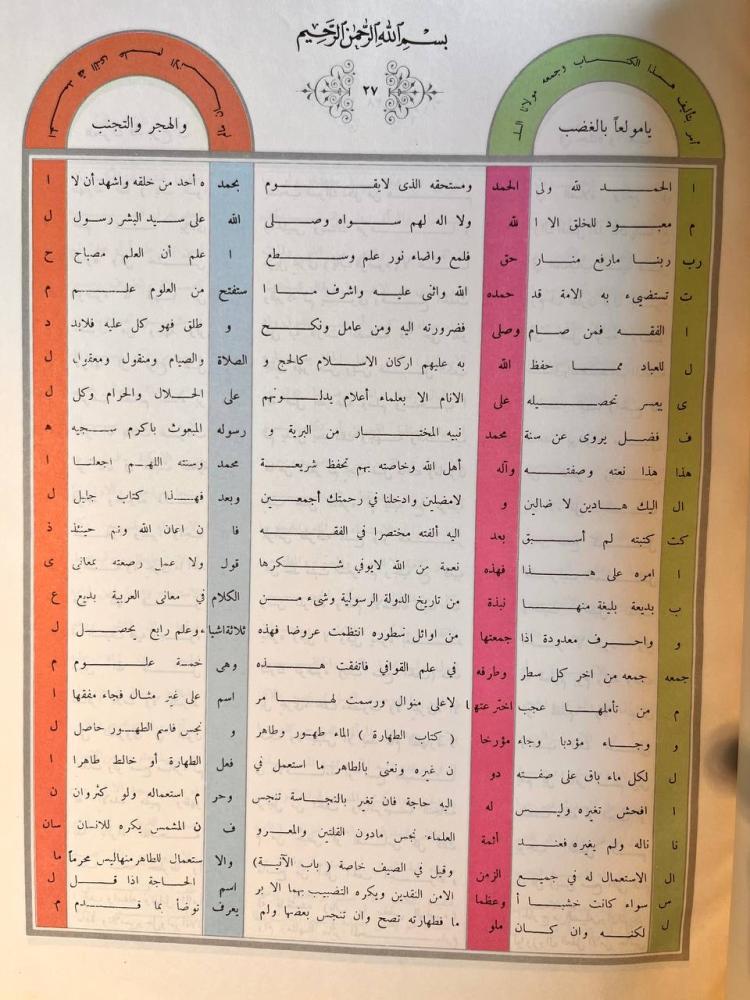 بسم الله الرحمن الرحيم
٢٧
أمر بتأليف هذا الكتاب وجمعه مولانا السلـ
الحمد لله الذى علم الانسان مالم
يامولعاً بالغضب
والهجر والتجنب
ا الحمد لله ولى الحمد ومستحقه الذى لايقوم بحمد ه أحد من خلقه واشهد أن لا ا
م معبود للخلق الا ا لله ولا اله لهم سواه وصلى الله على سيد البشر رسول ل
رب ربنا مارفع منار حق فلمع واضاء نور علم وسطع ا علم أن العلم مصباح ح
ت تستضيء به الامة قد حمده الله واثنى عليه واشرف ما ا ستفتح من العلوم علم م
ا الفقه فمن صام وصلى فضرورته اليه ومن عامل ونكح و طلق فهو كل عليه فلابد د
ل للعباد مما حفظ الله به عليهم اركان الاسلام كالحج و الصلاة والصيام ومنقول ومعقول ل
ى يعسر تحصيله على الانام الا بعلماء أعلام يدلونهم على الحلال والحرام وكل ل
ف فضل يروى عن سنة محمد نبيه المختار من البرية و رسوله المبعوث باكرم سجيه ه
هذا هذا نعته وصفته وآله أهل الله وخاصته بهم تحفظ شريعة محمد وسنته اللهم اجعلنا ا
ال اليك هادين لا ضالين و لامضلين وادخلنا في رحمتك أجمعين وبعد فهذا كتاب جليل ل
كت كتبته لم أسبق بعد اليه ألفته مختصرا في الفقه فا ن اعان الله وتم حينئذ ذ
ا امره على هذا فهذه نعمة من الله لايوفي شكرها قول ولا عمل رصعته بمعانى ى
ب بديعة بليغة منها نبذة من تاريخ الدولة الرسولية وشىء من الكلام في معانى العربية بديع ع
و واحرف معدودة اذا جمعتها من اوائل سطوره انتظمت عروضا فهذه ثلاثةاشياء وعلم رابع يحصل ل
جمعه جمعه من اخر كل سطر وطرفه في علم القوافي فاتفقت هذه وهى خمسة علوم م
م من تأملها عجب اخترعتها لاعلى منوال ورسمت لها مر اسم على غير مثال فجاء مفقها ا
و وجاء مؤدبا وجاء مؤرخا ( كتاب الطهارة ) الماء طهور وطاهر و نجس فاسم الطهور حاصل ل
ل لكل ماء باق على صفته دو ن غيره ونعنى بالطاهر ما استعمل في فعل الطهارة أو خالط طاهرا ا
ا افحش تغيره وليس له اليه حاجة فان تغير بالنجاسة تنجس وحر م استعماله ولو كثروان ن
نا ناله ولم يغيره فعند أئمة العلماء نجس مادون القلتين والمعرو ف ن المشمس يكره للانسان سان
ال الاستعمال له في جميع الزمن وقيل في الصيف خاصة ( باب الآنية) والا ستعمال للطاهرمنهاليس محرماً ما
س سواء كانت خشبا أ وعظما الامن النقدين ويكره التضبيب بهما الا بر اسم الحاجة اذا قل ل
ل لكنه وان كان ملو ما فطهارته تصح وان تنجس بعضها ولم يعرف توضأ بما قدم م